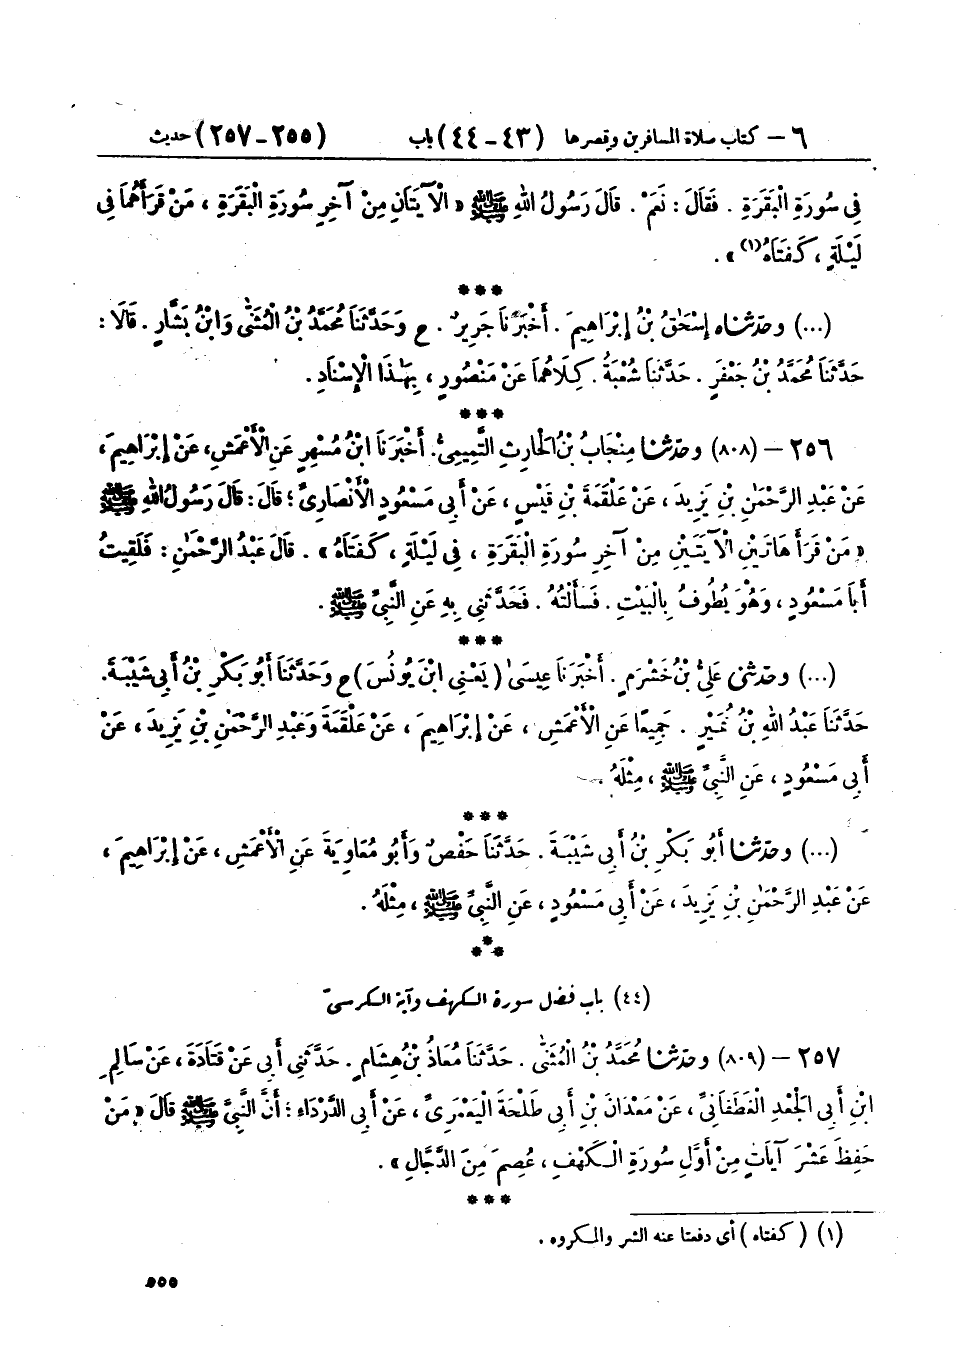 ٦ – كتاب صلاة المسافرين وقصرها (٤٣-٤٤) باب (٢٥٥-٢٥٧) حديث
فِي سُورَةِ الْبَقَرَةِ . فَقَالَ : نَعَمْ . قَالَ رَسُولُ اللهِ ﷺ « الْآيَتَانِ مِنْ آخِرِ سُورَةِ الْبَقَرَةِ ، مَنْ قَرَأَهُمَا فِي
لَيْلَةٍ ، كَفَتَاهُ(١) » .
***
(...) وحدثناه إِسْحَٰقُ بْنُ إِبْرَاهِيمَ . أَخْبَرَنَا جَرِيرٌ . ح وَحَدَّثَنَا مُحَمَّدُ بْنُ الْمُثَنَّىٰ وَابْنُ بَشَّارٍ . قَالَا :
حَدَّثَنَا مُحَمَّدُ بْنُ جَعْفَرٍ . حَدَّثَنَا شُعْبَةُ . كِلَاهُمَا عَنْ مَنْصُورٍ ، بِهَٰذَا الْإِسْنَادِ .
***
٢٥٦ – (٨٠٨) وحدثنا مِنْجَابُ بْنُ الْحَارِثِ التَّمِيمِيُّ . أَخْبَرَنَا ابْنُ مُسْهِرٍ عَنِ الْأَعْمَشِ ، عَنْ إِبْرَاهِيمَ ،
عَنْ عَبْدِ الرَّحْمَٰنِ بْنِ يَزِيدَ ، عَنْ عَلْقَمَةَ بْنِ قَيْسٍ ، عَنْ أَبِي مَسْعُودٍ الْأَنْصَارِيِّ ؛ قَالَ : قَالَ رَسُولُ اللهِ ﷺ
« مَنْ قَرَأَ هَاتَيْنِ الْآيَتَيْنِ مِنْ آخِرِ سُورَةِ الْبَقَرَةِ ، فِي لَيْلَةٍ ، كَفَتَاهُ » . قَالَ عَبْدُ الرَّحْمَٰنِ : فَلَقِيتُ
أَبَا مَسْعُودٍ ، وَهُوَ يَطُوفُ بِالْبَيْتِ . فَسَأَلْتُهُ . فَحَدَّثَنِي بِهِ عَنِ النَّبِيِّ ﷺ .
***
(...) وحدثني عَلِيُّ بْنُ خَشْرَمٍ . أَخْبَرَنَا عِيسَىٰ ( يَعْنِي ابْنَ يُونُسَ ) ح وَحَدَّثَنَا أَبُو بَكْرِ بْنُ أَبِي شَيْبَةَ .
حَدَّثَنَا عَبْدُ اللهِ بْنُ نُمَيْرٍ . جَمِيعًا عَنِ الْأَعْمَشِ ، عَنْ إِبْرَاهِيمَ ، عَنْ عَلْقَمَةَ وَعَبْدِ الرَّحْمَٰنِ بْنِ يَزِيدَ ، عَنْ
أَبِي مَسْعُودٍ ، عَنِ النَّبِيِّ ﷺ ، مِثْلَهُ .
***
(...) وحدثنا أَبُو بَكْرِ بْنُ أَبِي شَيْبَةَ . حَدَّثَنَا حَفْصٌ وَأَبُو مُعَاوِيَةَ عَنِ الْأَعْمَشِ ، عَنْ إِبْرَاهِيمَ ،
عَنْ عَبْدِ الرَّحْمَٰنِ بْنِ يَزِيدَ ، عَنْ أَبِي مَسْعُودٍ ، عَنِ النَّبِيِّ ﷺ ، مِثْلَهُ .
***
(٤٤) باب فضل سورة الكهف وآية الكرسيّ
٢٥٧ – (٨٠٩) وحدثنا مُحَمَّدُ بْنُ الْمُثَنَّىٰ . حَدَّثَنَا مُعَاذُ بْنُ هِشَامٍ . حَدَّثَنِي أَبِي عَنْ قَتَادَةَ ، عَنْ سَالِمِ
ابْنِ أَبِي الْجَعْدِ الْغَطَفَانِيِّ ، عَنْ مَعْدَانَ بْنِ أَبِي طَلْحَةَ الْيَعْمَرِيِّ ، عَنْ أَبِي الدَّرْدَاءِ ؛ أَنَّ النَّبِيَّ ﷺ قَالَ « مَنْ
حَفِظَ عَشْرَ آيَاتٍ مِنْ أَوَّلِ سُورَةِ الْكَهْفِ ، عُصِمَ مِنَ الدَّجَّالِ » .
***
(١) ( كفتاه ) أى دفعتا عنه الشر والمكروه .
٥٥٥